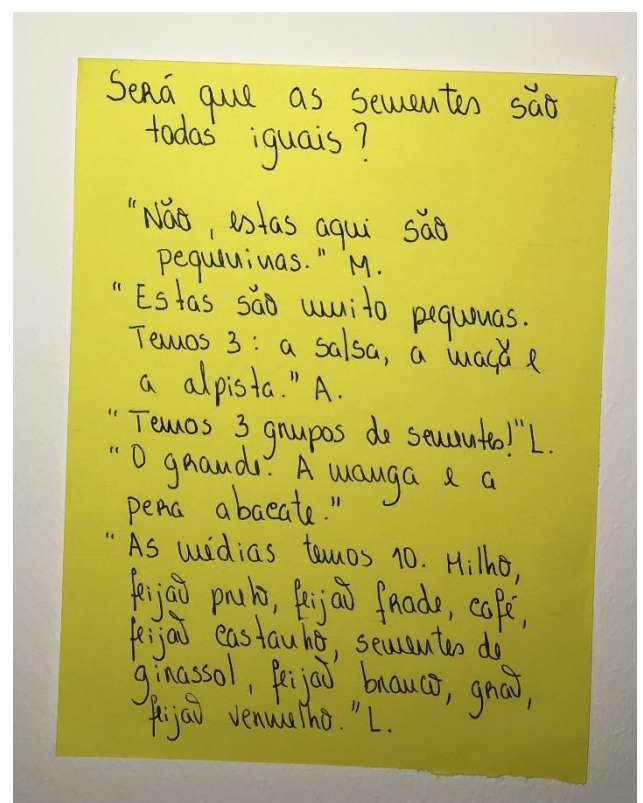 Será que as sementes são
todas iguais?
"Não, estas aqui são
pequeninas." M.
"Estas são muito pequenas.
Temos 3: a salsa, a maçã e
a alpista." A.
"Temos 3 grupos de sementes!" L.
"O grande. A manga e a
pera abacate."
"As médias temos 10. Milho,
feijão preto, feijão frade, café,
feijão castanho, sementes de
girassol, feijão branco, grão,
feijão vermelho." L.